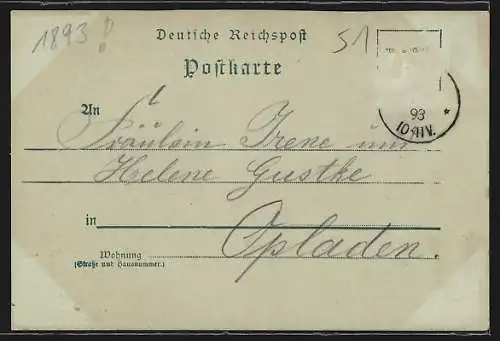 1893!
Deutsche Reichspost
51
Postkarte
93
10-11V.
An
Fräulein Irene und
Helene Gustke
in
Opladen.
Wohnung
(Straße und Hausnummer.)